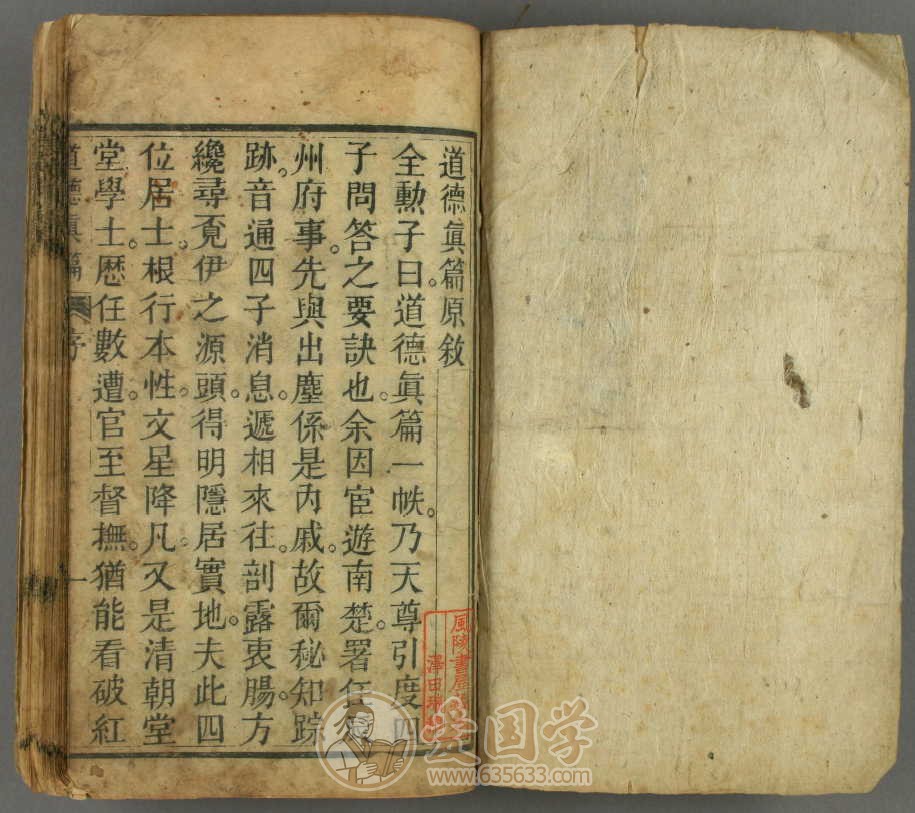 道德眞篇原敘
全勲子曰。道德眞篇一帙。乃天尊引度四
子問答之要訣也。余因宦遊南楚。署任
州府事。先與出塵係是內戚。故爾秘知踪
跡。音通四子消息。遞相來往。剖露衷腸。方
纔尋覓伊之源頭。得明隱居實地。夫此四
位居士。根行本性。文星降凡。又是清朝堂
堂學士。歷任數遭。官至督撫。猶能看破紅
道德眞篇 序 一
風陵書屋
澤田
爱国学
www.635633.com